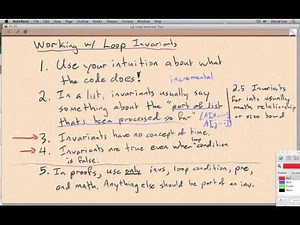 Working w/ Loop Invariants
1. Use your intuition about what
the code does!
incremental
2. In a list, invariants usually say
something about the "part of list
that's been processed so far"
2.5 Invariants
for ints usually
math relationship
or rise bound
3. Invariants have no concept of time.
4. Invariants are true even when loop condition
is false.
5. In proofs, use only invs, loop condition, pre,
and math. Anything else should be part of an inv.